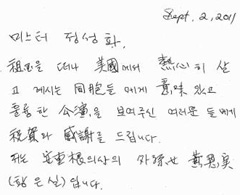 Sept. 2, 2011
미스터 정성화,
祖国을 떠나 美國에서 熱心히 살
고 계시는 同胞들에게 意味있고
훌륭한 公演을 보여주신 여러분들에게
祝賀와 感謝를 드립니다.
저는 安重根의사의 外孫女 黃恩實
(황은실)입니다.